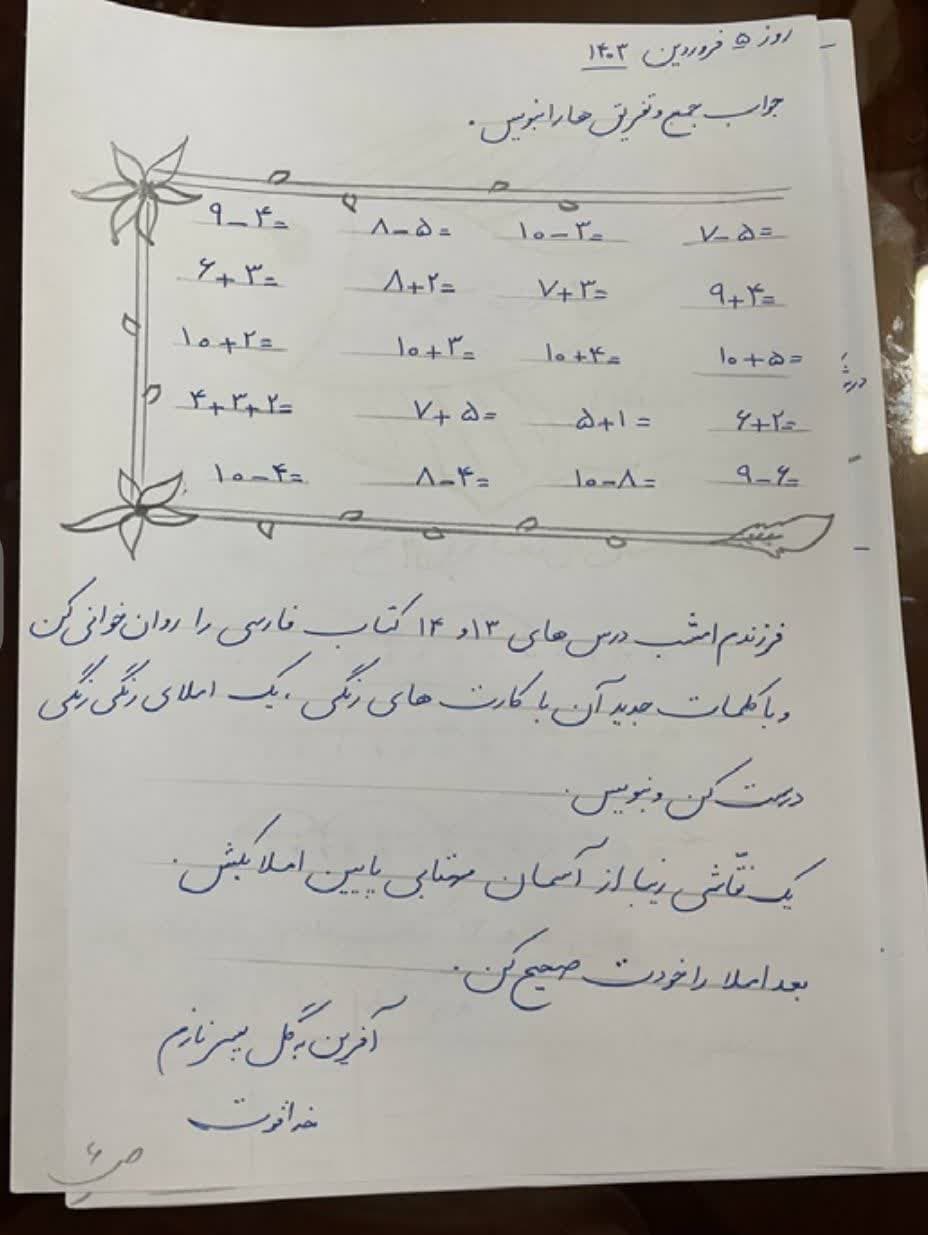 روز ۵ فروردین ۱۴۰۳
جواب جمع و تفریق ها را بنویس.
۹-۴= ۸-۵= ۱۰-۳= ۷-۵=
۶+۳= ۸+۲= ۷+۳= ۹+۴=
۱۰+۲= ۱۰+۳= ۱۰+۴= ۱۰+۵=
۴+۳+۲= ۷+۵= ۵+۱= ۶+۲=
۱۰-۴= ۸-۴= ۱۰-۸= ۹-۶=
فرزندم امشب درس های ۱۳ و ۱۴ کتاب فارسی را روان خوانی کن
و با کلمات جدید آن با کارت های رنگی ، یک املای رنگی رنگی
درست کن و بنویس.
یک نقّاشی زیبا از آسمان مهتابی پایین املا بکش.
بعد املا را خودت صحیح کن.
آفرین به گل پسر نازم
خداقوت
ص ۶